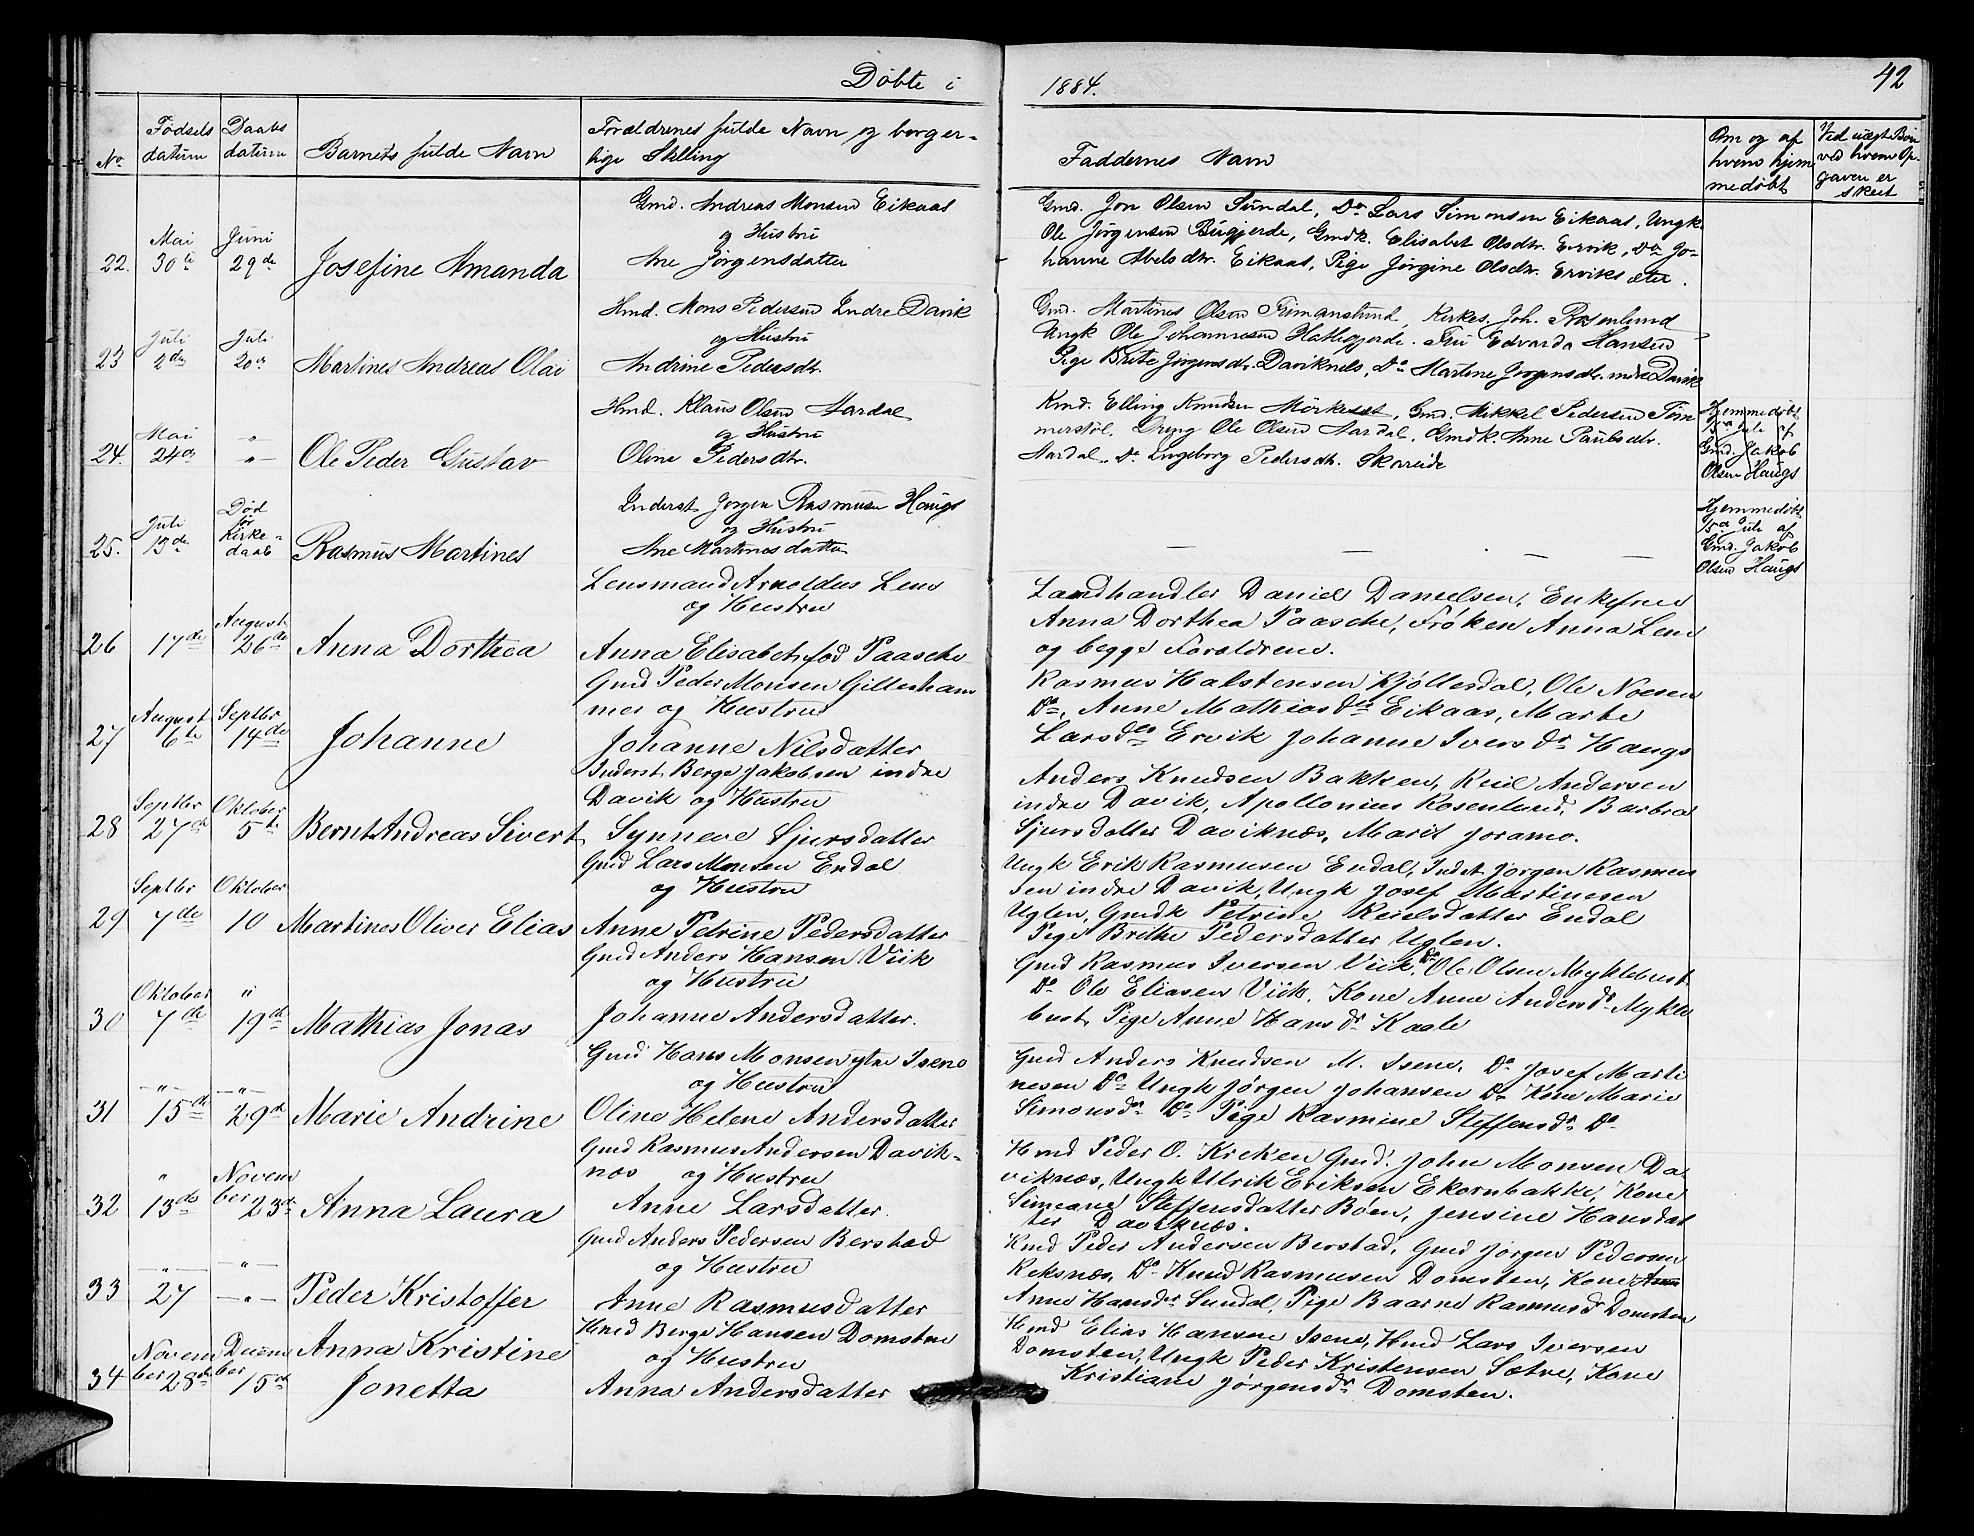 Døbte i 1884.
42
No.
Fødsels datum
Daabs datum
Barnets fulde Navn
Forældrenes fulde Navn og borger-
lige Stilling
Faddernes Navn
Om og af
hvem hjem
medøbt
Ved uægte Børn
ved hvem Op-
gaven er
skeet
22.
Mai
30te
Juni
29de
Josefine Amanda
Gmd. Andreas Monsen Eikaas
og Hustru
Ane Jørgensdatter
Gmd. Jon Olsen Sundal, Do Lars Simonsen Eikaas, Ungk.
Ole Jørgensen Bugjerde, Gmdk. Elisabet Olsdtr. Ervik, Do Jo-
hanne Abelsdtr. Eikaas, Pige Jørgine Olsdtr. Erviksæter.
23
Juli
2den
Juli
20de
Martines Andreas Olai
Hmd. Mons Pedersen Indre Davik
og Hustru
Andrine Pedersdtr.
Gmd. Martines Olsen, Kirkes. Joh. Rosenlund
Ungk Ole Johannesen Hattegjerde. Fru Edvarda Hansen
Pige Brite Jørgensdtr. Daviknes, Do Martine Jørgensdtr. indre Davik
24.
Mai
24de
"
-"-
Ole Peder Gustav
Hmd. Klaus Olsen Aardal
og Hustru
Oline Pedersdtr.
Kmd. Elling Knudsen Mørkeset, Gmd. Mikkel Pedersen Tom
merstøl, Dreng Ole Olsen Aardal, Gmdk. Anne Paulsdtr.
Aardal, Do Ingeborg Pedersdtr. Skoreide
Hjemmedøbt
Juli af
Gmd. Jakob
Olsen Haugs
25.
Juli
13de
Død
før
Kirke-
daab
Rasmus Martines
Inderst Jørgen Rasmusen Haugs
og Hustru
Ane Martinesdatter
— — — —
Hjemmedøbt
15de Juli af
Gmd. Jakob
Olsen Haugs
26
17de
August
26de
Anna Dorthea
Lensmand Arnoldus Lem
og Hustru
Anna Elisabet, fød Paasche
Landhandler Daniel Danielsen, Enkefrue
Anna Dorthea Paasche, Frøken Anna Lem
og begge Forældrene.
27
August
6te
Septbr
14de
Johanne
Gmd Peder Monsen Gillesham
mer og Hustru
Johanne Nilsdatter
Rasmus Halstensen Kjøllesdal, Ole Noesen
Do, Anne Mathiasdtr Eikaas, Marte
Larsdtr Ervik Johanne Iversdr Haugs
28
Septbr
27de
Oktober
5te
Bernt Andreas Sivert
Inderst Berge Jakobsen indre
Davik og Hustru
Synneve Sjursdatter
Anders Knudsen Bakken, Reiel Andersen
indre Davik, Apollonius Rosenlund, Barbra
Sjursdatter Daviknæs, Marit Joramo.
29
Septbr
7de
Oktober
10
Martines Oliver Elias
Gmd Lars Monsen Endal
og Hustru
Anne Petrine Pedersdatter
Ungk Erik Rasmusen Endal, Indst Jørgen Rasmus
sen indre Davik, Ungk Josef Martinesen
Uglen, Gmdk Petrine Reielsdatter Endal
Pige Brithe Pedersdatter Uglen.
30
Oktober
7de
"
19de
Mathias Jonas
Gmd Anders Hansen Viik
og Hustru
Johanne Andersdatter.
Gmd Rasmus Iversen Viik, Do Ole Olsen Myklebust
Do Ole Eliasen Viik, Kone Anne Andersdr Mykle
bust, Pige Anne Hansdr Kaale
31
-"-
15de
-"-
29de
Marie Andrine
Gmd Hans Monsen ytre Isene
og Hustru
Oline Helene Andersdatter
Gmd Anders Knudsen M. Isene, Do Josef Marti
nesen Do Ungk Jørgen Johansen Do Kone Marie
Simonsdr Do Pige Rasmine Steffensdr Do
32
"
13de
Novem
ber 23de
Anna Laura
Gmd Rasmus Andersen Davik-
nes og Hustru
Anne Larsdatter.
Hmd Peder O. Kreken Gmd: John Monsen Da-
viknæs, Ungk Ulrik Eriksen Ekornbakke, Kone
Simeane Steffensdatter Bøen, Jensine Hansdat
ter Daviknæs.
33
-"-
27
-"-
-"-
Peder Kristoffer
Gmd Anders Pedersen Berstad
og Hustru
Anne Rasmusdatter
Kmd Peder Andersen Berstad, Gmd Jørgen Pedersen
Reksnæs, Do Knud Rasmusen Domsten, Kone
Anne Hansdr Sundal, Pige Baarne Rasmusdr Domsten
34
Novem
ber 28de
Decem
ber 15de
Anna Kristine
Jonetta
Hmd Berge Hansen Domsten
og Hustru
Anna Andersdatter
Hmd Elias Hansen Isene, Hmd Lars Iversen
Domsten, Ungk Peder Kristensen Sætre, Kone
Kristiane Jørgensdr Domsten.